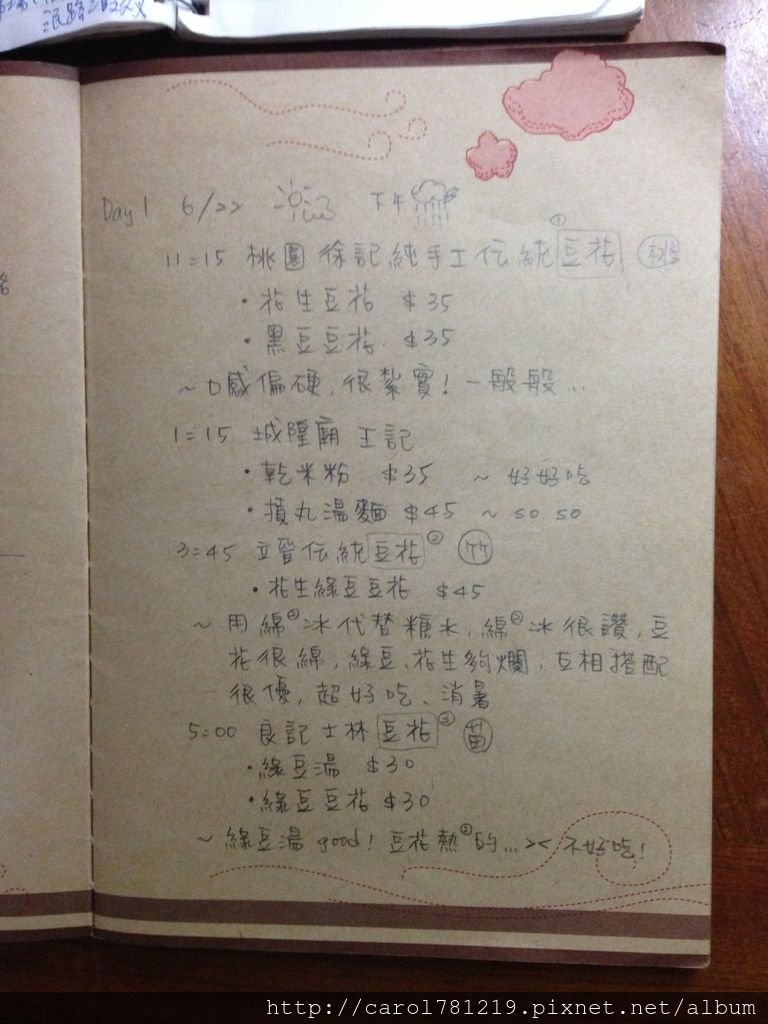 Day 1 6/22 下午
11:15 桃園 徐記純手工伝統豆花① 桃
・花生豆花 $35
・黑豆豆花 $35
~口感偏硬,很紮實!一般般…
1:15 城隍廟 王記
・乾米粉 $35 ~ 好好吃
・摃丸湯麵 $45 ~ so so
3:45 立晉伝統豆花② 竹
・花生綠豆豆花 $45
~ 用綿②冰代替糖水,綿②冰很讚,豆
花很綿,綠豆、花生夠爛,互相搭配
很優,超好吃、消暑
5:00 良記士林豆花③ 苗
・綠豆湯 $30
・綠豆豆花 $30
~ 綠豆湯 good! 豆花熱②的…>< 不好吃!
http://carol781219.pixnet.net/album